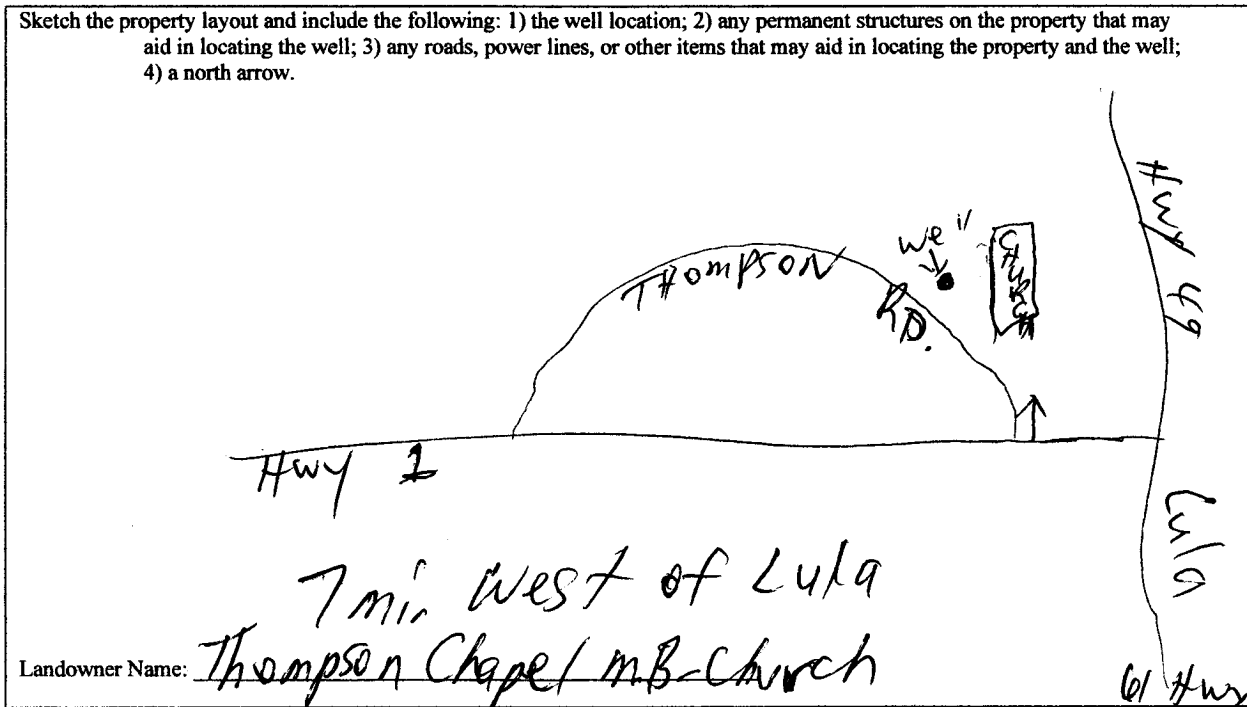 Sketch the property layout and include the following: 1) the well location; 2) any permanent structures on the property that may
aid in locating the well; 3) any roads, power lines, or other items that may aid in locating the property and the well;
4) a north arrow.
Hwy 49
Well
CHURCH
THOMPSON
RD.
Hwy 1
Lula
7 mi. West of Lula
Landowner Name: Thompson Chapel M.B-Church
61 Hwy